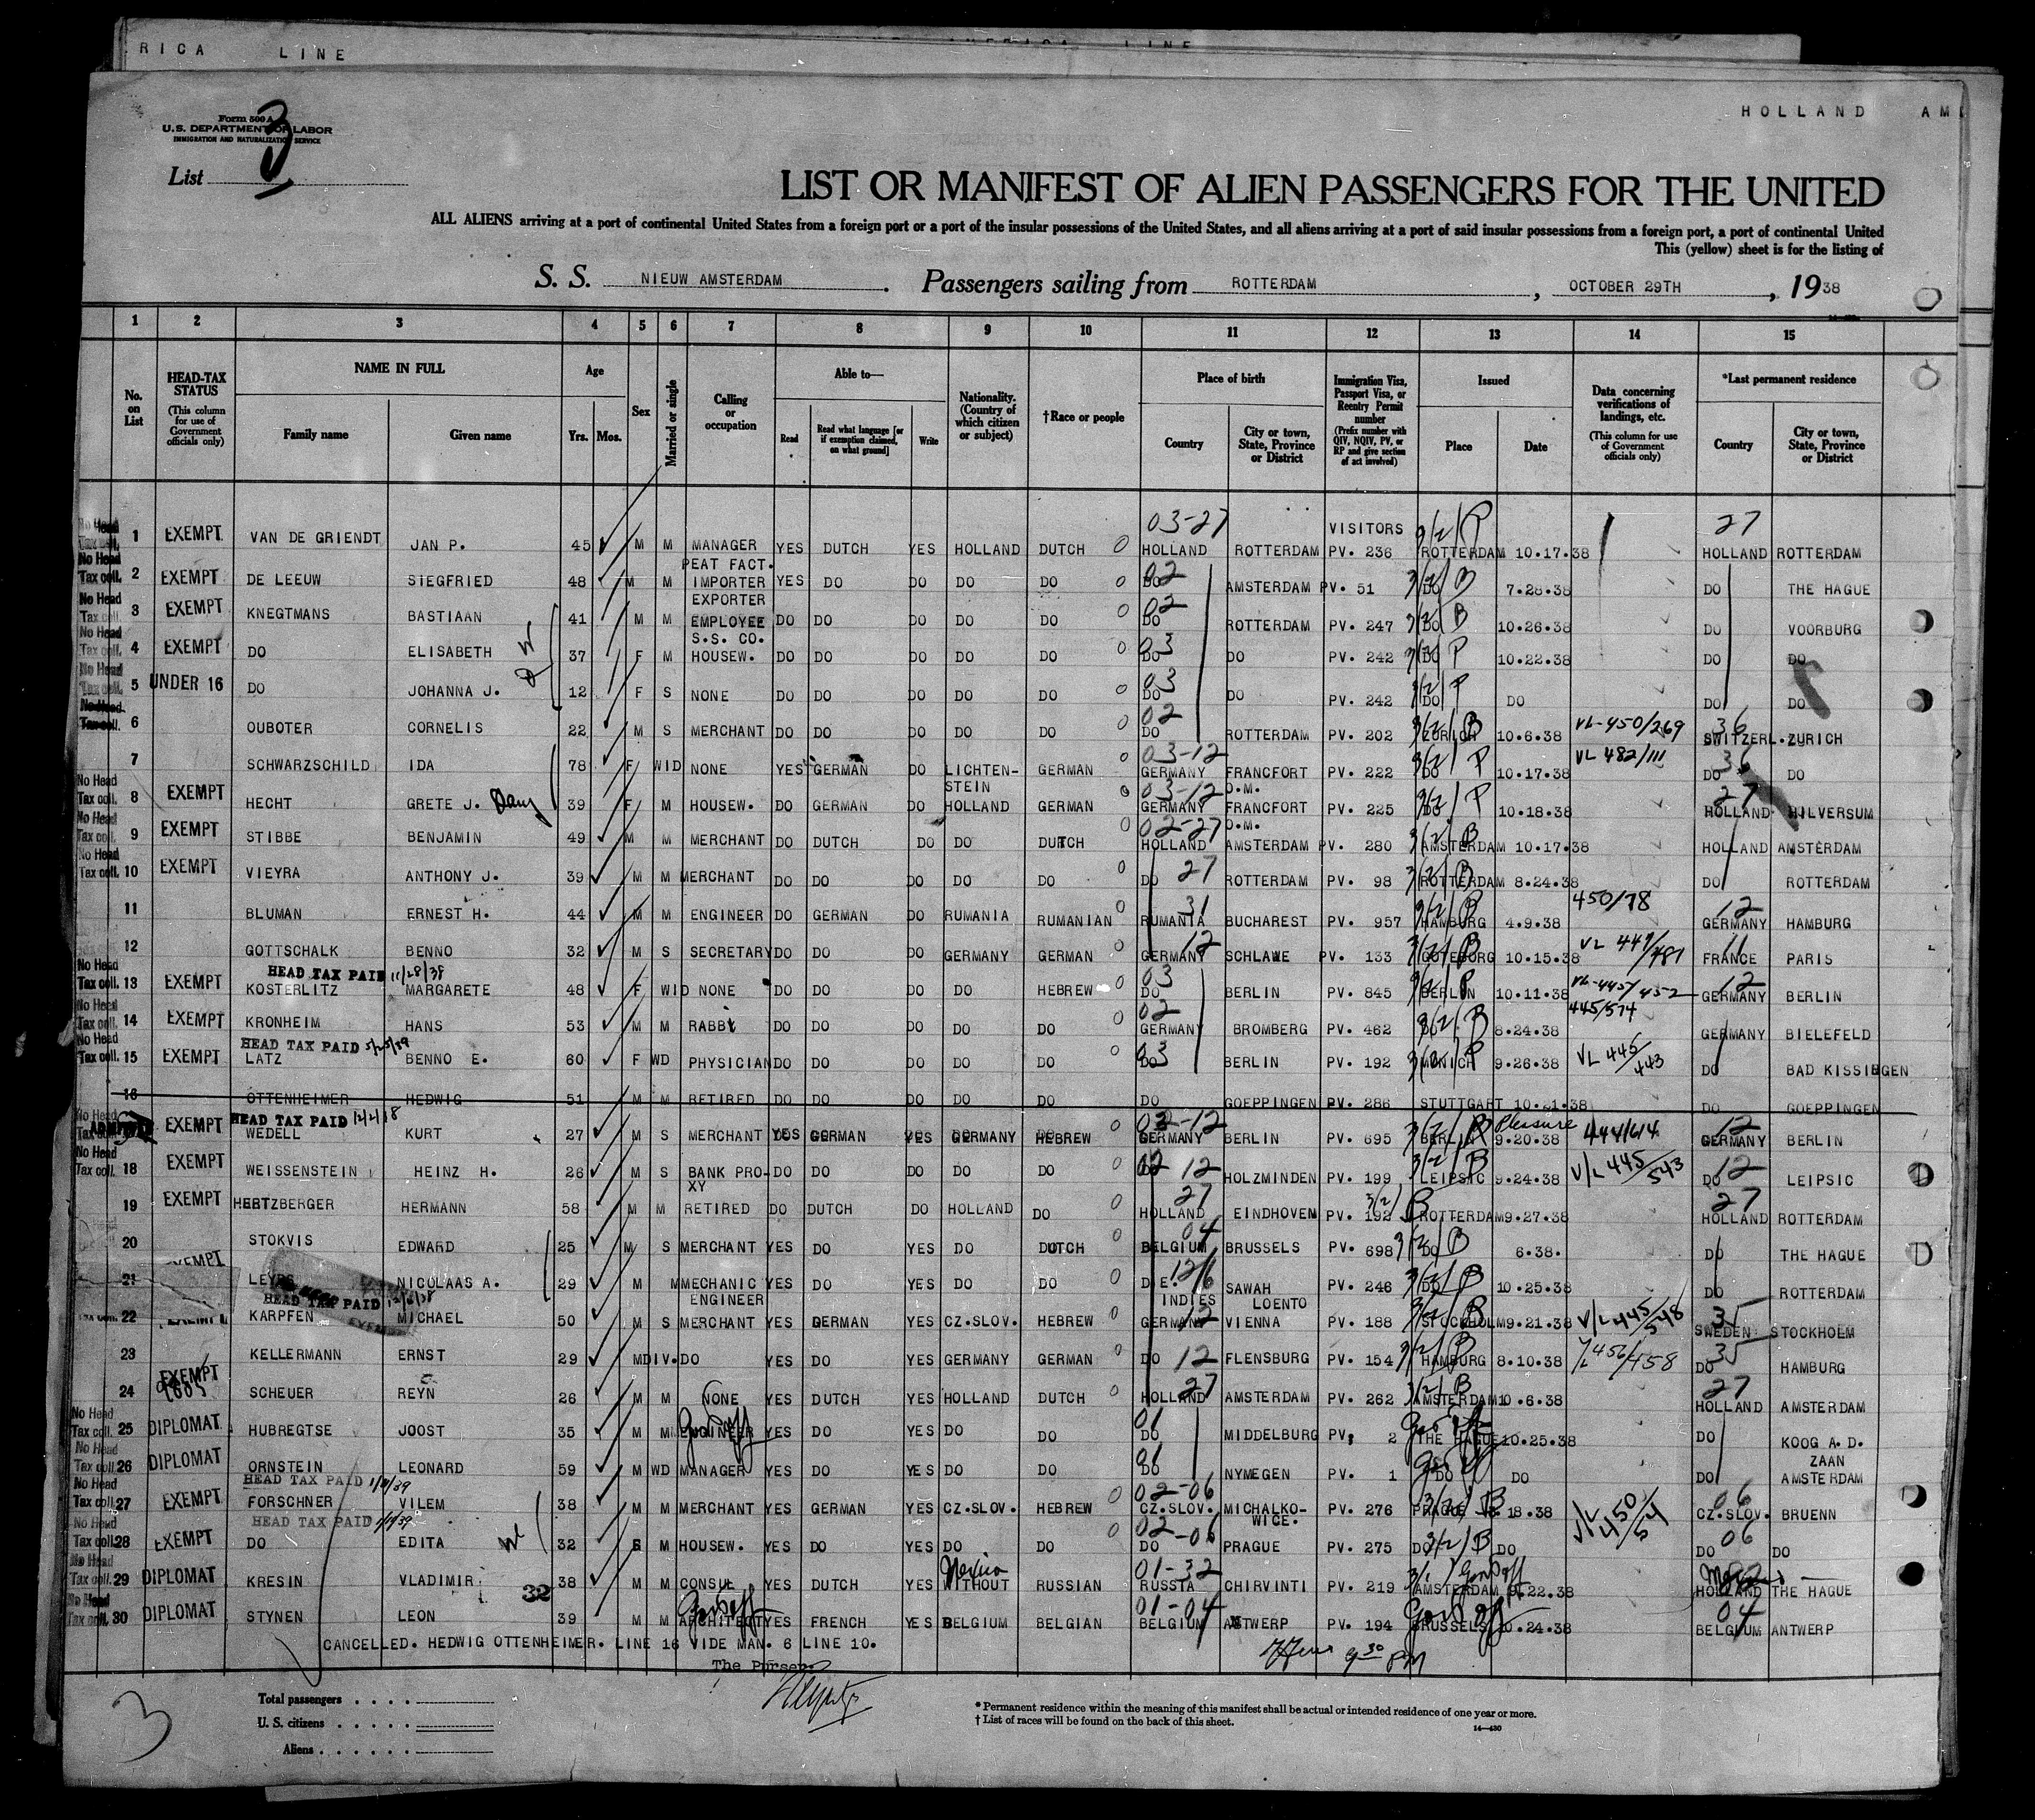 RICA LINE
HOLLAND AM
Form 500 A
U.S. DEPARTMENT OF LABOR
IMMIGRATION AND NATURALIZATION SERVICE
List 3
LIST OR MANIFEST OF ALIEN PASSENGERS FOR THE UNITED
ALL ALIENS arriving at a port of continental United States from a foreign port or a port of the insular possessions of the United States, and all aliens arriving at a port of said insular possessions from a foreign port, a port of continental United
This (yellow) sheet is for the listing of
S. S. NIEUW AMSTERDAM. Passengers sailing from ROTTERDAM, OCTOBER 29TH, 1938
1 2 3 4 5 6 7 8 9 10 11 12 13 14 15
No. on List
HEAD-TAX STATUS (This column for use of Government officials only)
NAME IN FULL Family name Given name
Age Yrs. Mos.
Sex
Married or single
Calling or occupation
Able to— Read Read what language [or if exemption claimed, on what ground] Write
Nationality. (Country of which citizen or subject)
†Race or people
Place of birth Country City or town, State, Province or District
Immigration Visa, Passport Visa, or Reentry Permit number (Prefix number with QIV, NQIV, PV, or RP and give section of act involved)
Issued Place Date
Data concerning verifications of landings, etc. (This column for use of Government officials only)
*Last permanent residence Country City or town, State, Province or District
03-27 VISITORS 27
No Head Tax coll. 1 EXEMPT VAN DE GRIENDT JAN P. 45 M M MANAGER PEAT FACT. YES DUTCH YES HOLLAND DUTCH HOLLAND ROTTERDAM PV. 236 3/2/P ROTTERDAM 10.17.38 HOLLAND ROTTERDAM
No Head Tax coll. 2 EXEMPT DE LEEUW SIEGFRIED 48 M M IMPORTER EXPORTER YES DO DO DO DO 02 DO AMSTERDAM PV. 51 3/2/B DO 7.28.38 DO THE HAGUE
No Head Tax coll. 3 EXEMPT KNEGTMANS BASTIAAN 41 M M EMPLOYEE S.S. CO. DO DO DO DO DO 02 DO ROTTERDAM PV. 247 3/2/B DO 10.26.38 DO VOORBURG
No Head Tax coll. 4 EXEMPT DO ELISABETH W 37 F M HOUSEW. DO DO DO DO DO 03 DO DO PV. 242 3/2/P DO 10.22.38 DO DO
No Head Tax coll. 5 UNDER 16 DO JOHANNA J. D 12 F S NONE DO DO DO DO DO 03 DO DO PV. 242 3/2/P DO DO DO DO
No Head Tax coll. 6 OUBOTER CORNELIS 22 M S MERCHANT DO DO DO DO DO 02 DO ROTTERDAM PV. 202 3/2/B ZURICH 10.6.38 VL-450/269 36 SWITZERL. ZURICH
7 SCHWARZSCHILD IDA 78 F WID NONE YES GERMAN DO LICHTEN-STEIN GERMAN 03-12 GERMANY FRANCFORT O.M. PV. 222 3/2/P DO 10.17.38 VL 482/111 36 DO DO
No Head Tax coll. 8 EXEMPT HECHT GRETE J. Dau 39 F M HOUSEW. DO GERMAN DO HOLLAND GERMAN 03-12 GERMANY FRANCFORT O.M. PV. 225 3/2/P DO 10.18.38 27 HOLLAND HILVERSUM
No Head Tax coll. 9 EXEMPT STIBBE BENJAMIN 49 M M MERCHANT DO DUTCH DO DO DUTCH 02-27 HOLLAND AMSTERDAM PV. 280 3/2/B AMSTERDAM 10.17.38 HOLLAND AMSTERDAM
No Head Tax coll. 10 EXEMPT VIEYRA ANTHONY J. 39 M M MERCHANT DO DO DO DO DO DO 27 ROTTERDAM PV. 98 3/2/B ROTTERDAM 8.24.38 DO ROTTERDAM
11 BLUMAN ERNEST H. 44 M M ENGINEER DO GERMAN DO RUMANIA RUMANIAN 31 RUMANIA BUCHAREST PV. 957 3/2/B HAMBURG 4.9.38 450/78 12 GERMANY HAMBURG
12 GOTTSCHALK BENNO 32 M S SECRETARY DO DO DO GERMANY GERMAN 12 GERMANY SCHLAWE PV. 133 3/2/B GOTEBORG 10.15.38 VL 449/781 11 FRANCE PARIS
HEAD TAX PAID 11/28/38
No Head Tax coll. 13 EXEMPT KOSTERLITZ MARGARETE 48 F WID NONE DO DO DO DO HEBREW 03 DO BERLIN PV. 845 3/2/P BERLIN 10.11.38 VL-445/452 12 GERMANY BERLIN
No Head Tax coll. 14 EXEMPT KRONHEIM HANS 53 M M RABBI DO DO DO DO DO 02 GERMANY BROMBERG PV. 462 3/2/B DO 8.24.38 445/574 GERMANY BIELEFELD
HEAD TAX PAID 5/25/39
No Head Tax coll. 15 EXEMPT LATZ BENNO E. 60 F WD PHYSICIAN DO DO DO DO DO 03 DO BERLIN PV. 192 3/2/P MUNICH 9.26.38 VL 445/443 DO BAD KISSINGEN
16 OTTENHEIMER HEDWIG 51 M M RETIRED DO DO DO DO DO DO GOEPPINGEN PV. 286 STUTTGART 10.21.38 DO GOEPPINGEN
HEAD TAX PAID 12/2/18
No Head Tax coll. ADMITTED EXEMPT WEDELL KURT 27 M S MERCHANT YES GERMAN YES GERMANY HEBREW 02-12 GERMANY BERLIN PV. 695 3/2/B Pleasure BERLIN 9.20.38 444/614 12 GERMANY BERLIN
No Head Tax coll. 18 EXEMPT WEISSENSTEIN HEINZ H. 26 M S BANK PROXY DO DO DO DO DO DO 12 HOLZMINDEN PV. 199 3/2/B LEIPSIC 9.24.38 V/L 445/543 12 DO LEIPSIC
19 EXEMPT HERTZBERGER HERMANN 58 M M RETIRED DO DUTCH DO HOLLAND DO 27 HOLLAND EINDHOVEN PV. 192 3/2/B ROTTERDAM 9.27.38 27 HOLLAND ROTTERDAM
20 STOKVIS EDWARD 25 M S MERCHANT YES DO YES DO DUTCH 04 BELGIUM BRUSSELS PV. 698 3/2/B DO 6.38. DO THE HAGUE
21 EXEMPT NICOLAAS A. 29 M M MECHANIC ENGINEER YES DO YES DO DO D.E. INDIES SAWAH LOENTO PV. 246 3/2/B DO 10.25.38 DO ROTTERDAM
HEAD TAX PAID
Tax coll. 22 EXEMPT KARPFEN MICHAEL 50 M S MERCHANT YES GERMAN YES CZ.SLOV. HEBREW 12 GERMANY VIENNA PV. 188 3/2/B STOCKHOLM 9.21.38 V/L 445/548 35 SWEDEN STOCKHOLM
23 KELLERMANN ERNST 29 M DIV. DO YES DO YES GERMANY GERMAN DO 12 FLENSBURG PV. 154 3/2/B HAMBURG 8.10.38 456/158 35 DO HAMBURG
24 EXEMPT SCHEUER REYN 26 M M NONE YES DUTCH YES HOLLAND DUTCH 27 HOLLAND AMSTERDAM PV. 262 3/2/B AMSTERDAM 10.6.38 27 HOLLAND AMSTERDAM
No Head Tax coll. 25 DIPLOMAT HUBREGTSE JOOST 35 M M ENGINEER YES DO YES DO DO 01 DO MIDDELBURG PV. 2 Gov Off THE HAGUE 10.25.38 DO KOOG A. D. ZAAN
No Head Tax coll. 26 DIPLOMAT ORNSTEIN LEONARD 59 M WD MANAGER YES DO YES DO DO 01 DO NYMEGEN PV. 1 Gov Off DO DO DO AMSTERDAM
HEAD TAX PAID
No Head Tax coll. 27 EXEMPT FORSCHNER VILEM 38 M M MERCHANT YES GERMAN YES CZ.SLOV. HEBREW 02-06 CZ.SLOV. MICHALKO-WICE. PV. 276 3/2/B PRAGUE 18.38 V/L 450/54 06 CZ.SLOV. BRUENN
HEAD TAX PAID
No Head Tax coll. 28 EXEMPT DO EDITA W 32 M HOUSEW. YES DO YES DO DO 02-06 DO PRAGUE PV. 275 3/2/B DO DO 06 DO DO
No Head Tax coll. 29 DIPLOMAT KRESIN VLADIMIR 38 M M CONSUL YES DUTCH YES Mexico WITHOUT RUSSIAN 01-32 RUSSIA CHIRVINTI PV. 219 Gov Off AMSTERDAM 9.22.38 HOLLAND THE HAGUE
32
No Head Tax coll. 30 DIPLOMAT STYNEN LEON 39 M M Gov Off ARCHITECT YES FRENCH YES BELGIUM BELGIAN 01-04 BELGIUM ANTWERP PV. 194 Gov Off BRUSSELS 10.24.38 04 BELGIUM ANTWERP
CANCELLED. HEDWIG OTTENHEIMER. LINE 16 VIDE MAN. 6 LINE 10.
9 30 PM
The Purser.
3
Total passengers . . . .
U. S. citizens . . . . .
Aliens . . . . . .
* Permanent residence within the meaning of this manifest shall be actual or intended residence of one year or more.
† List of races will be found on the back of this sheet.
14—430